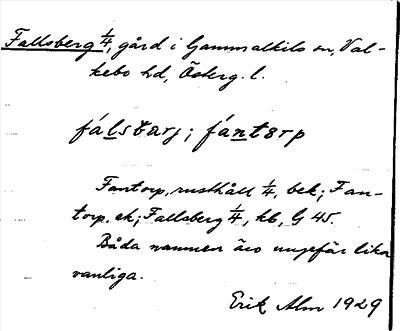 Fallsberg 1/4, gård i Gammalkils sn, Val-
kebo hd, Österg. l.
fálsbärj; fántorp
Fantorp, rusthåll 1/4, bek; Fan-
torp, ek; Fallsberg 1/4, kb, G 45.
Båda namnen äro ungefär lika
vanliga.
Erik Alm 1929